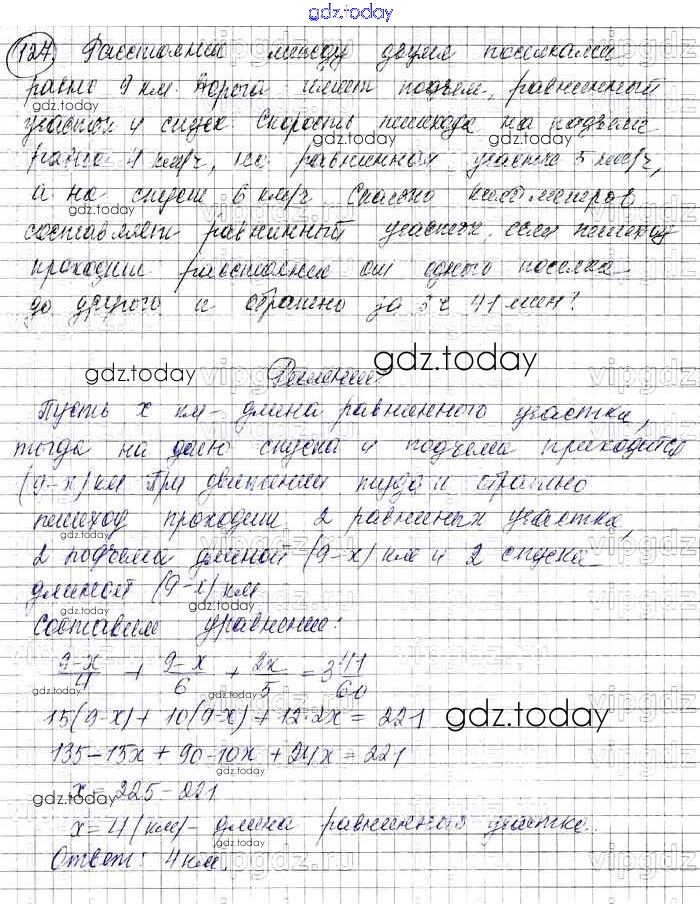 gdz.today
127. Расстояние между двумя поселками
равно 9 км. Дорога имеет подъем, равнинный
gdz.today
участок и спуск. Скорость пешехода на подъеме
gdz.today
равна 4 км/ч, на равнинном участке 5 км/ч,
а на спуске 6 км/ч. Сколько километров
gdz.today
составляет равнинный участок, если пешеход
проходит расстояние от одного поселка
gdz.today
до другого и обратно за 3 ч 41 мин?
Решение.
gdz.today gdz.today
Пусть x км - длина равнинного участка,
тогда на долю спуска и подъема приходится
(9-x) км При движении туда и обратно
пешеход проходит 2 равнинных участка,
2 подъёма длиной (9-x) км и 2 спуска
длиной (9-x) км
gdz.today
Составим уравнение:
9-x/4 + 9-x/6 + 2x/5 = 3 41/60
gdz.today
15(9-x) + 10(9-x) + 12·2x = 221
gdz.today
135-15x + 90-10x + 24x = 221
gdz.today
x = 225-221
x = 4 (км) - длина равнинного участка.
gdz.today
Ответ: 4 км.